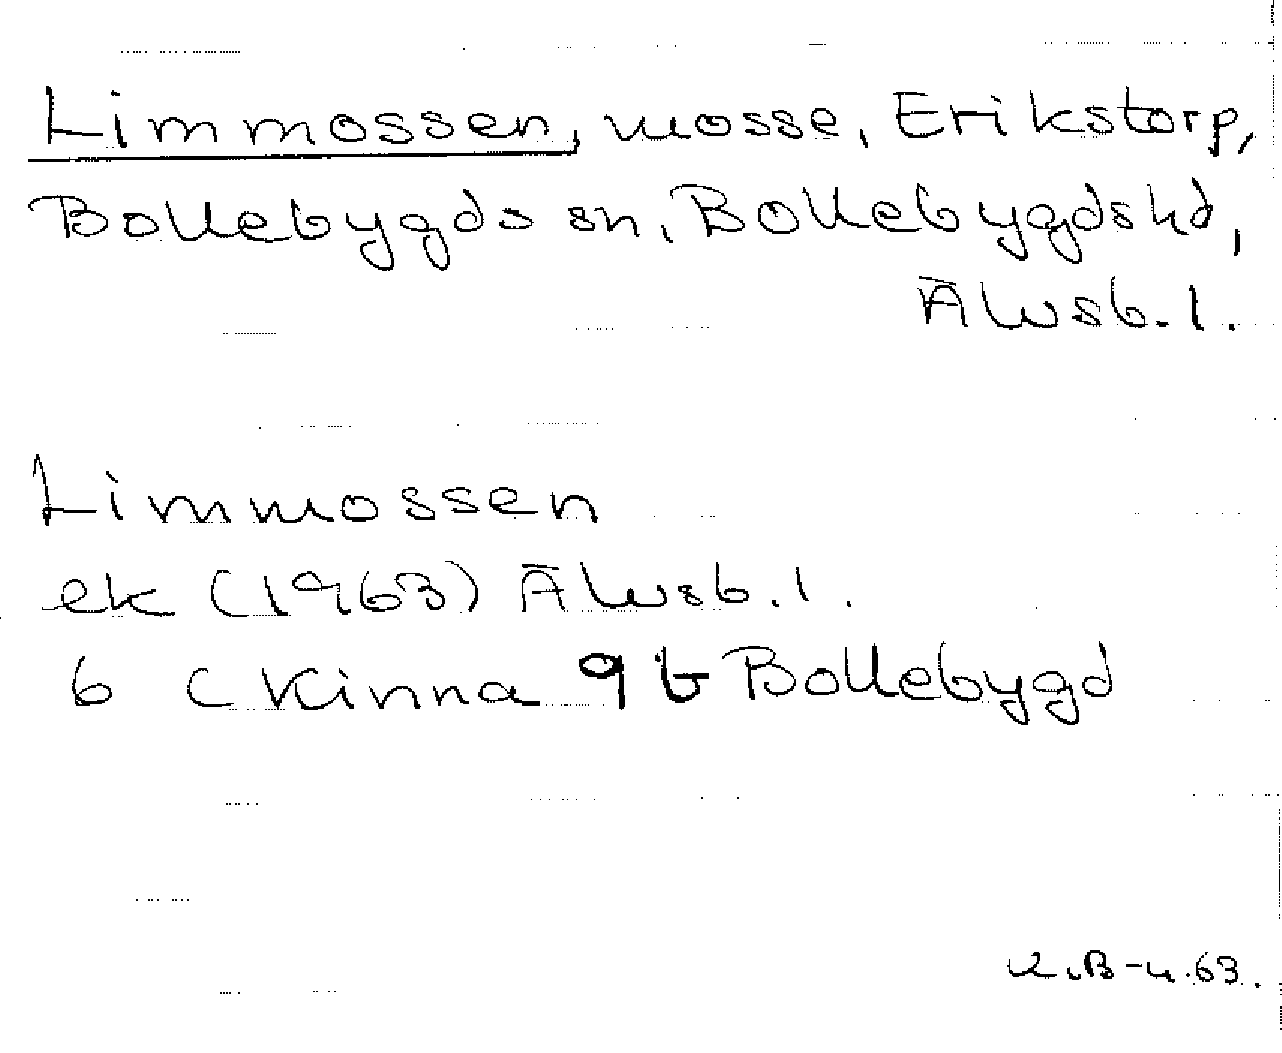 Limmossen, mosse, Erikstorp,
Bollebygds sn, Bollebygdshd,
Älvsb. l.
Limmossen
ek (1963) Älvsb. l.
6 C Kinna 9 b Bollebygd
K.B-n.63.